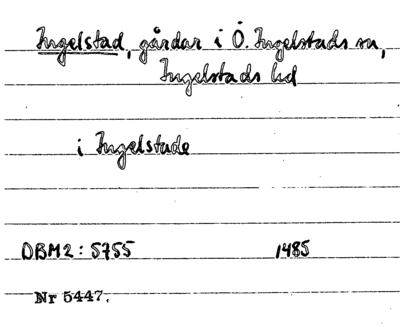 Ingelstad, gårdar i Ö. Ingelstads sn,
Ingelstads hd
i Ingelstade
DBM2: 5755 1485
Nr 5447.